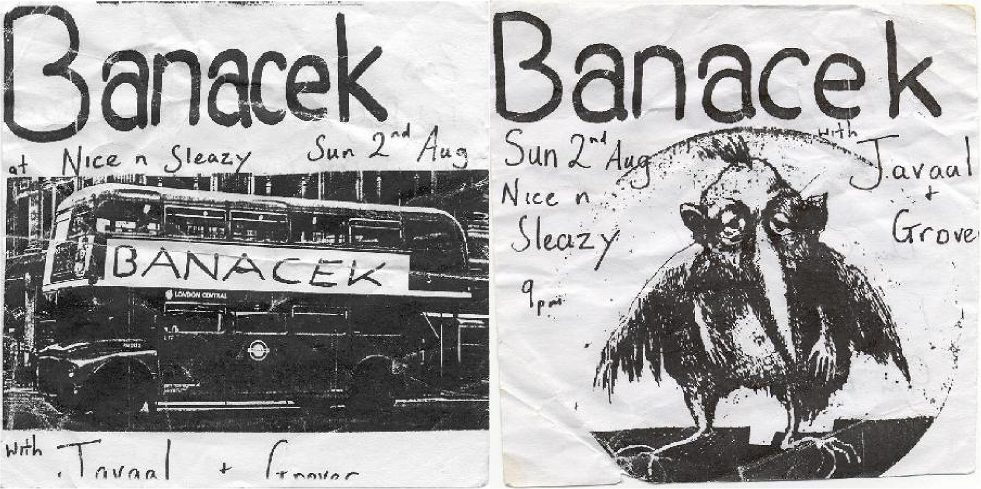 Banacek
at Nice n Sleazy Sun 2nd Aug
BANACEK
LONDON CENTRAL
with Javaal + Grover
Banacek
Sun 2nd Aug
Nice n
Sleazy
9pm
with
Javaal
+
Grove